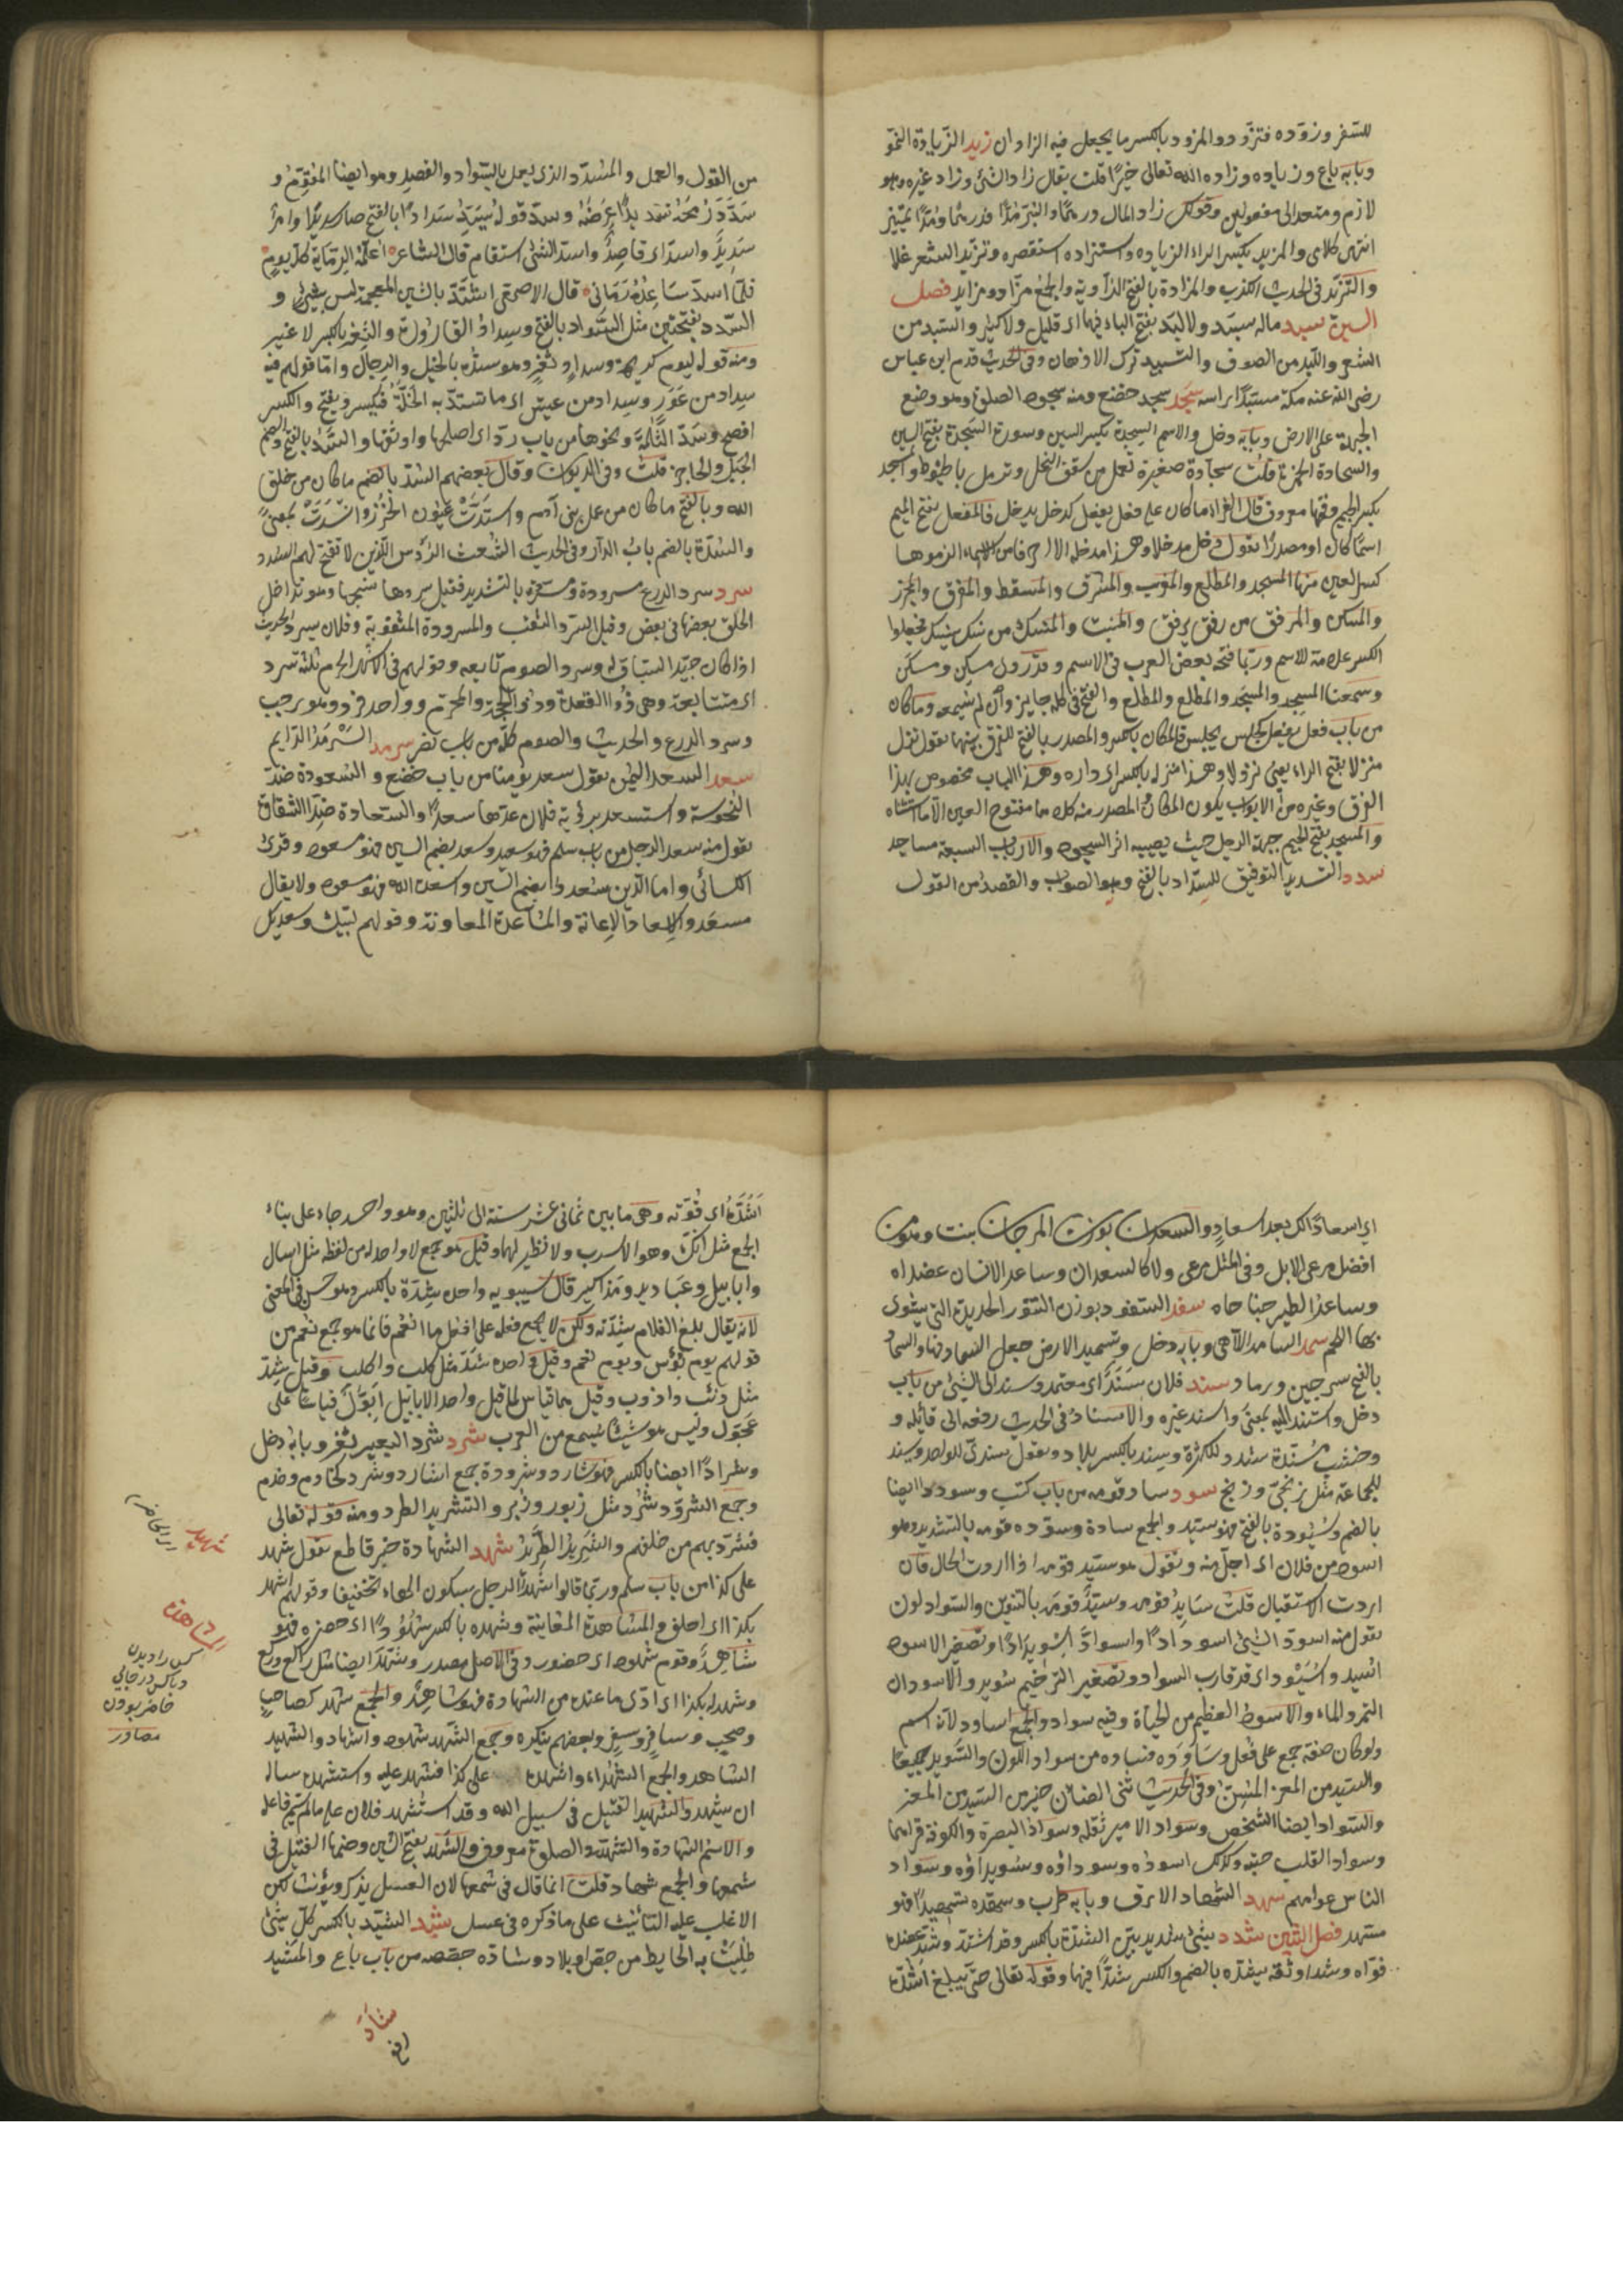 للسفر وزوده فتزود والمزود بالكسر ما يجعل فيه الزاد ان زيد الزيادة النمو
وبابه باع وزيادة وزاده الله تعالى خيرا قلت يقال زاد الشئ وزاد غيره وهو
لازم ومتعد الى مفعولين وقولك زاد المال درهما والبر مدا فدرهما ومدا تمييز
انتهى كلامى والمزيد بكسر الزاء الزيادة واستزاده استقصره وتزيد السعر غلا
والتزيد فى الحديث الكذب والمزادة بالفتح الراوية والجمع مزاد ومزايد فصل
السين سبد ماله سبد ولا لبد بفتح الباء فيهما اى قليل ولا كثير والسبد من
الشعر واللبد من الصوف والتسبيد ترك الادهان وفى الحديث قدم ابن عباس
رضى الله عنه مكة مسبدا راسه سجد سجد خضع ومنه سجود الصلوة وهو وضع
الجبهة على الارض وبابه دخل والاسم السجدة بكسر السين وسورة السجدة بفتح السين
والسجادة الخمرة قلت سجادة صغيرة تعمل من سعف النخل وترمل بالخيوط والمسجد
بكسر الجيم وفتحها معروف قال الفراء ما كان على فعل يفعل كدخل يدخل فالمفعل بفتح الميم
اسما كان او مصدرا تقول دخل مدخلا وهذا مدخله الا احرفا من الاسماء الزموها
كسر العين منها المسجد والمطلع والمغرب والمشرق والمسقط والمفرق والمجزر
والمسكن والمرفق من رفق يرفق والمنبت والمنسك من نسك ينسك فجعلوا
الكسر علامة للاسم وربما فتحه بعض العرب فى الاسم وقد روى مسكن ومسكن
وسمعنا المسجد والمسجد والمطلع والمطلع والفتح فى كله جايز وان لم نسمعه وما كان
من باب فعل يفعل كجلس يجلس فالمكان بالكسر والمصدر بالفتح للفرق بينهما تقول نزل
منزلا بفتح الزاء يعنى نزولا وهذا منزله بالكسر اى داره وهذا الباب مخصوص بهذا
الفرق وغيره من الابواب يكون المكان والمصدر منه كلاهما مفتوح العين الا ما استثناه
والمسجد بفتح الجيم جبهة الرجل حيث يصيبه اثر السجود والآراب السبعة مساجد
سدد التسديد التوفيق للسداد بالفتح وهو الصواب والقصد من القول
من القول والعمل والمسدد الذى يعمل بالسداد والقصد وهو ايضا المقوم و
سدد رمحه تسديدا عرضه وسد قوله يسد سدادا بالفتح صار سديدا وامر
سديد واسد اى قاصد واستد الشئ استقام قال الشاعر اعلمه الرماية كل يوم
فلما استد ساعده رمانى قال الاصمعى اشتد بالشين المعجمة ليس بشئ و
السدد بفتحتين مثل السداد بالفتح وسداد القارورة والثغر بالكسر لا غير
ومنه قوله ليوم كريهة وسداد ثغر وهو سده بالخيل والرجال واما قولهم فيه
سداد من عوز وسداد من عيش اى ما تسد به الخلة فيكسر ويفتح والكسر
افصح وسد الثلمة ونحوها من باب رد اى اصلحها واوثقها والسد بالفتح والضم
الجبل والحاجز قلت وفى الديوان وقال بعضهم السد بالضم ما كان من خلق
الله وبالفتح ما كان من عمل بنى آدم واستدت عيون الخرز وانسدت بمعنى
والسدة بالضم باب الدار وفى الحديث الشعث الرؤس الذين لا تفتح لهم السدد
سرد سرد الدرع مسرودة ومسردة بالتشديد فقيل سردها نسجها وهو تداخل
الحلق بعضها فى بعض وقيل السرد الثقب والمسرودة المثقوبة وفلان يسرد الحديث
اذا كان جيد السياق له وسرد الصوم تابعه وقولهم فى الاشهر الحرم ثلثة سرد
اى متتابعة وهى ذو القعدة وذو الحجة والمحرم وواحد فرد وهو رجب
وسرد الدرع والحديث والصوم كله من باب نصر سرمد السرمد الدايم
سعد السعد اليمن تقول سعد يومنا من باب خضع والسعودة ضد
النحوسة واستسعد برؤية فلان عدها سعدا والسعادة ضد الشقاوة
تقول منه سعد الرجل من باب سلم فهو سعيد وسعد بضم السين فهو مسعود وقرئ
الكسائى واما الذين سعدوا بضم السين واسعده الله فهو مسعود ولا يقال
مسعد والاسعاد الاعانة والمساعدة المعاونة وقولهم لبيك وسعديك
اى اسعادا لك بعد اسعاد والسعدان بوزن المرجان نبت وهو من
افضل مرعى الابل وفى المثل مرعى ولا كالسعدان وساعدا الانسان عضداه
وساعدا الطير جناحاه سفد السفود بوزن التنور الحديدة التى يشوى
بها اللحم سمد السامد اللاهى وبابه دخل وتسميد الارض جعل السماد فيها والسماد
بالفتح سرجين ورماد سند فلان سند اى معتمد وسند الى الشئ من باب
دخل واستند اليه بمعنى واسند غيره والاسناد فى الحديث رفعه الى قائله و
وخشب مسندة شدد للكثرة وسند بالكسر بلاد وتقول سندى للواحد وسند
للجماعة مثل زنجى وزنج سود ساد قومه من باب كتب وسوددا ايضا
بالضم وسيدودة بالفتح فهو سيد والجمع سادة وسوده قومه بالتشديد وهو
اسود من فلان اى اجل منه وتقول هو سيد قومه اذا اردت الحال فان
اردت الاستقبال قلت سايد قومه وسيد قومه بالتنوين والسواد لون
تقول منه اسود الشئ اسودادا واسواد اسويدادا وتصغير الاسود
اسيد واسيود اى قد قارب السواد وتصغير الترخيم سويد والاسودان
التمر والماء والاسود العظيم من الحياة وفيه سواد والجمع اساود لانه اسم
ولو كان صفة جمع على فعل وساوده فساده من سواد اللون والسودد جميعا
والسيد من المعز المسن وفى الحديث ثنى الضان خير من السيد من المعز
والسواد ايضا الشخص وسواد الامير ثقله وسواد البصرة والكوفة قراهما
وسواد القلب حبته وكذلك اسوده وسوداؤه وسويداؤه وسواد
الناس عوامهم سهد السهاد الارق وبابه طرب وسهده تسهيدا فهو
مسهد فصل الشين شدد شئ شديد بين الشدة بالكسر وقد اشتد وشد عضده
قواه وشده اوثقه يشده بالضم والكسر شدا فيهما وقوله تعالى حتى يبلغ اشده
اشده اى قوته وهى ما بين ثمانى عشر سنة الى ثلثين وهو واحد جاء على بناء
الجمع مثل آنك وهو الاسرب ولا نظير لهما وقيل هو جمع لا واحد له من لفظه مثل اسال
وابابيل وعباديد ومذاكير قال سيبويه واحده شدة بالكسر وهو حسن فى المعنى
لانه يقال بلغ الغلام شدته ولكن لا يجمع فعلة على افعل واما انعم فانما هو جمع نعم من
قولهم يوم بؤس ويوم نعم وقيل واحده شد مثل كلب واكلب وقيل شد
مثل ذئب واذوب وقيل هما قياس لما قيل واحد الابابيل ابول قياسا على
عجول وليس هو شيئا سمع من العرب شرد شرد البعير نفر وبابه دخل
وشرادا ايضا بالكسر فهو شارد وشرود وجمع الشارد شرد كخادم وخدم
وجمع الشرود شرد مثل زبور وزبر والتشريد الطرد ومنه قوله تعالى
فشرد بهم من خلفهم والشريد الطريد شهد الشهادة خبر قاطع تقول شهد
على كذا من باب سلم وربما قالوا شهد الرجل بسكون الهاء تخفيفا وقولهم اشهد
بكذا اى احلف والمشاهدة المعاينة وشهده بالكسر شهودا اى حضره فهو
شاهد وقوم شهود اى حضور وفى الاصل مصدر وشهد ايضا مثل راكع وركع
وشهد له بكذا اى ادى ما عنده من الشهادة فهو شاهد والجمع شهد كصاحب
وصحب وسافر وسفر وبعضهم ينكره وجمع الشهد شهود واشهاد والشهيد
الشاهد والجمع الشهداء واشهده على كذا فشهد عليه واستشهده ساله
ان يشهد والشهيد القتيل فى سبيل الله وقد استشهد فلان على ما لم يسم فاعله
والاسم الشهادة والتشهد فى الصلوة معروف والشهد بفتح الشين وضمها العسل فى
شمعها والجمع شهاد قلت انما قال فى شمعها لان العسل يذكر ويؤنث لكن
الاغلب عليه التانيث على ما ذكره فى عسل شيد الشيد بالكسر كل شئ
طليت به الحايط من جص او بلاد وشاده جصصه من باب باع والمشيد
شهيد
الشاهدة
كس را ديدن
وبا كس در جايى
حاضر بودن
مصادر